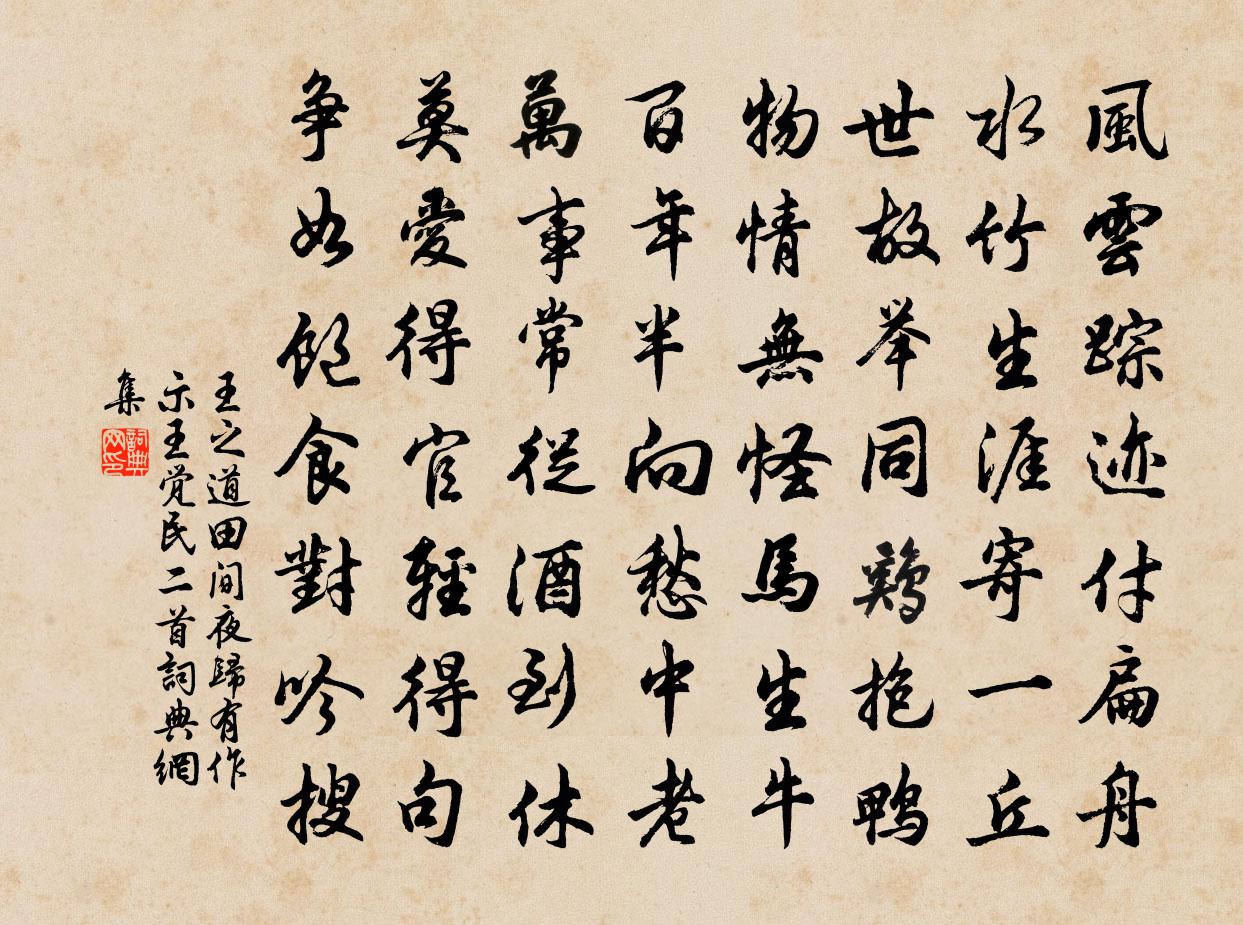 風雲踪迹付扁舟
水竹生涯寄一丘
世故举同鷄抱鴨
物情無怪馬生牛
百年半向愁中老
萬事常從酒到休
莫愛得官輕得句
争如飽食對吟搜
王之道田间夜歸有作
示王觉民二首詞典網
集
詞典
网印